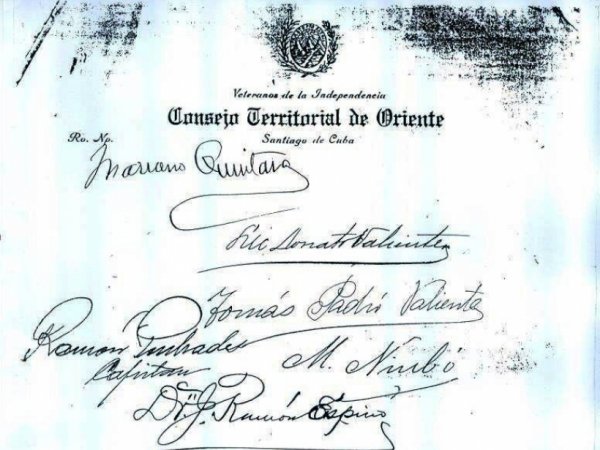 Veteranos de la Independencia
Consejo Territorial de Oriente
Santiago de Cuba
Ro. No.
Mariano Quintana
Donato Valiente
Tomás Padró Valiente
Ramón
Capitan
M. Nimbó
Dr. J. Ramón Espino